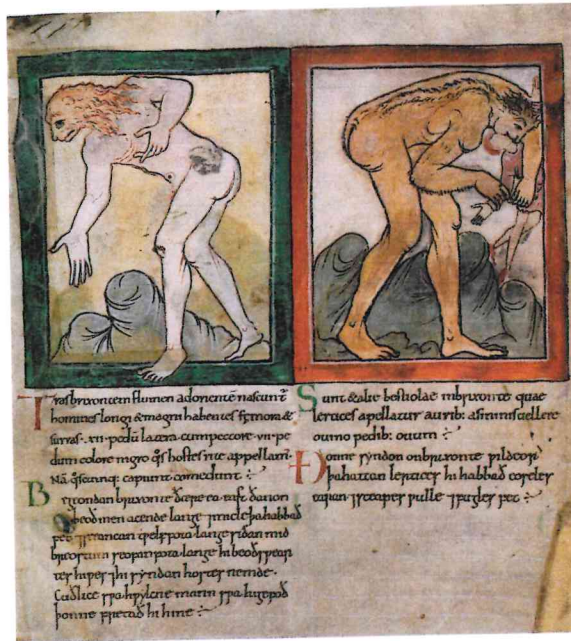 Trasbrixontem flumen adorientē nascunt̄
homines longi & magni habentes femora &
surras .xii. pedū latera cum pectore .vii. pe
dum colore nigro q̄s hostes rite appellam̄.
Nā q̄scunq; capiunt comedunt :
Begeondan brixonte ðære ea east ðanon
beoð men acende lange ⁊ micle þa habbað
fet ⁊ sceancan tƿelf fota lange sidan mid
breostum seofan fota lange hi beoð sƿear
tes hiƿes ⁊ hi syndan hostes nemde.
Cuðlice sƿa hƿylcne mann sƿa hi gefoð
þonne fretað hi hine :
Sunt & alie bestiolae inbrixonte quae
lertices apellatur aurib: asininis uellere
ouino pedib: auium :
Ðonne syndon on brixonte ƿildeor
þa hattan lertices hi habbað eoseles
earan ⁊ sceapes ƿulle ⁊ fugeles fet :